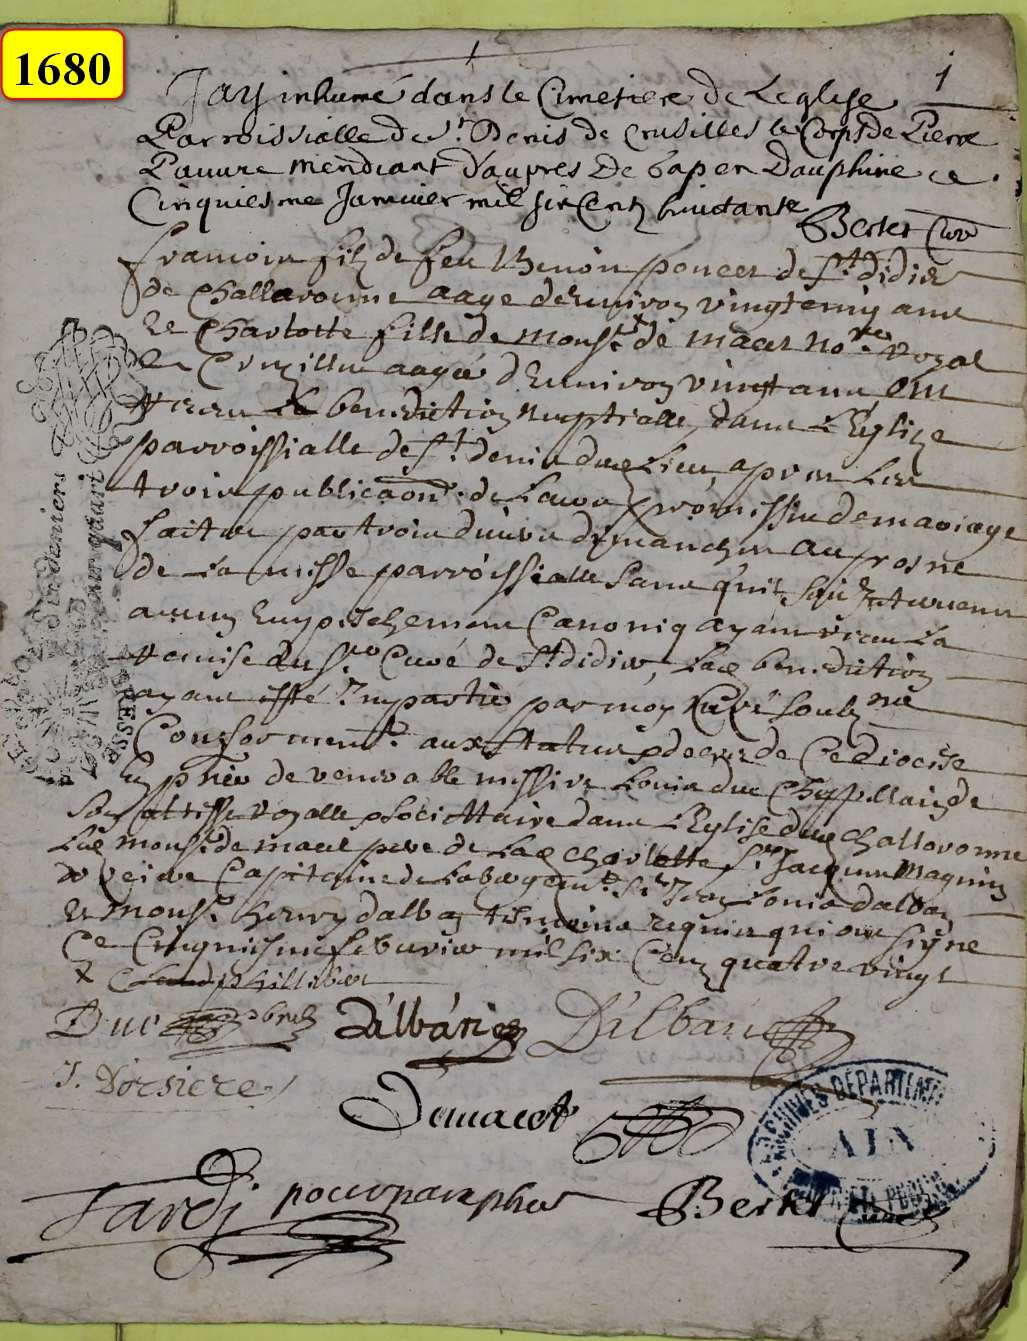 1680
1
Jay inhumé dans le Cimetiere de Leglise
Parroissialle de St Denis de Crusilles le Corps de Pierre
Pauvre mendiant d'aupres de Gap en Dauphine ce
Cinquiesme Janvier mil six Cents huictante
Berter Curé
francois filz de feu Benoit poncet de St didier
de Challaronne aage d'Environ vingt cinq ans
Et Charlotte fille de Monsr de macet nore Royal
de Cruzille aagée d'Environ vingt ans ont
receu La benediction nuptialle dans L'Eglize
parroissialle de St denis dud Lieu, apres Les
trois publicaons de Leurs promesses de mariage
faites par trois divers dimanches au prosne
de La messe parroissialle sans qu'il soit
aucun Empeschement Canoniq ayant veu La
remise du Sr Curé de St didier, Lad benediction
ayant esté Impartie par moy Curé soubzne
Conformemt. aux statuts & decrets de Ce diocese
En pñce de venerable messire Louis duc Chappellain de
Son altesse Royalle & Societtaire dans L'Eglise dud Challaronne
Led Monsr de macet pere de Lad Charlotte Sr Jacques Magnin
Capitaine de Sr Jean Louis dalban
Et Monsr henry dalban tesmoins requis qui ont signe
Ce Cinquiesme febvrier mil six Cens quatre vingt
Duc
D'albanes
D'alban
J. Dorsiere
Demacet
Tardy pour parapher
Berter
SIX DENIERS
BRESSE
ARCHIVES DÉPARTEMENTALES
AIN